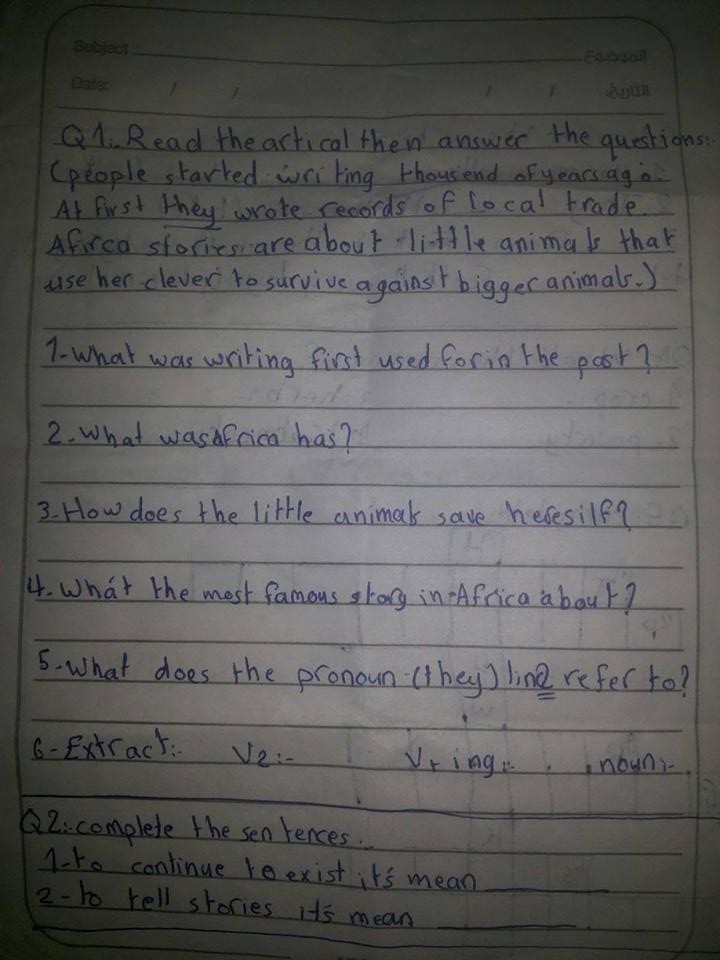 Subject الموضوع
Date: / / / / التاريخ
Q1:. Read the artical then answer the questions:.
(people started writing thousend of years ago.
At first they wrote records of local trade.
Afirca stories are about little animals that
use her clever to survive against bigger animals.)
1-What was writing first used for in the past?
2-What was Africa has?
3-How does the little animals save heresilf?
4-What the most famous story in Africa about?
5-What does the pronoun (they) line2 refer to?
6-Extract:- V2:- V+ing:- noun:-
Q2:-complete the sentences..
1-to continue to exist it's mean ________
2-to tell stories it's mean ________.